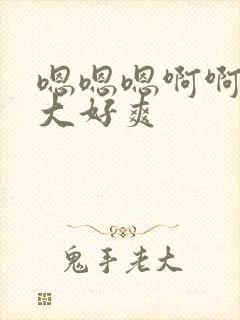 嗯嗯嗯啊啊
大好爽
鬼手老大